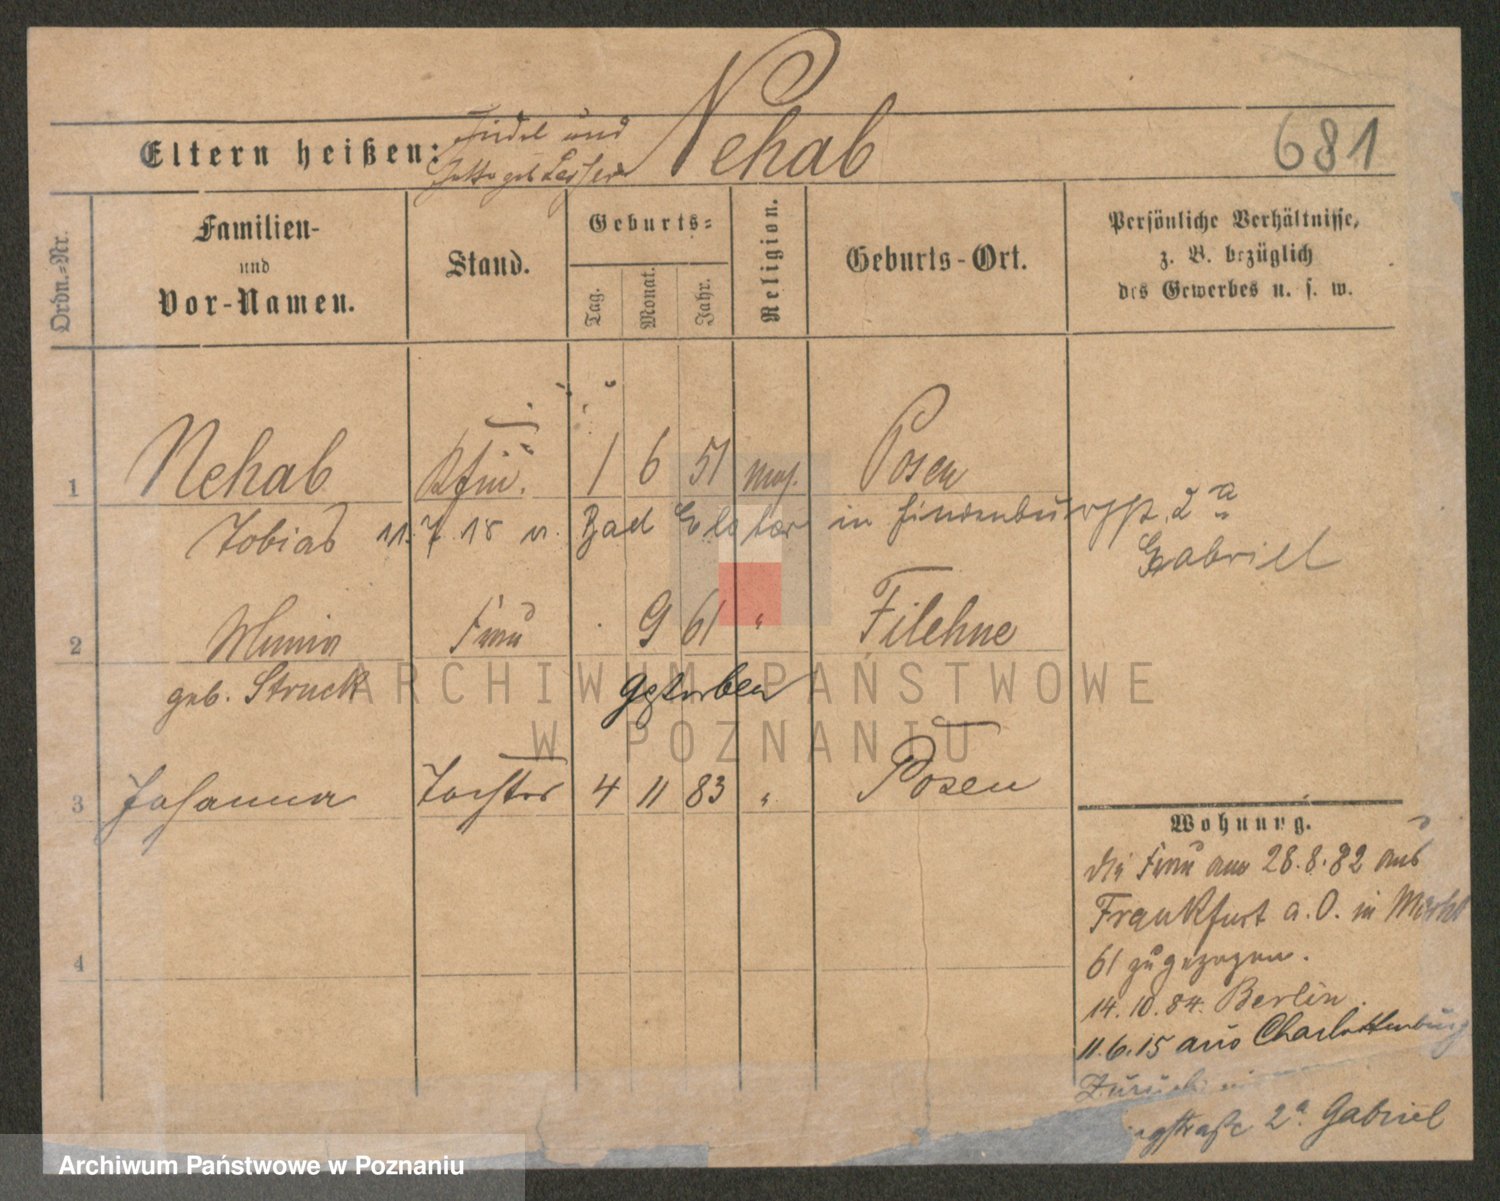 Nehab
681
Eltern heißen: Findel und
geb. Lesser
Ordn.-Nr.
Familien-
und
Vor-Namen.
Stand.
Geburts-
Tag.
Monat.
Jahr.
Religion.
Geburts-Ort.
Persönliche Verhältnisse,
z. B. bezüglich
des Gewerbes u. s. w.
1 Nehab Kfm. 1 6 51 mos. Posen
Tobias 11. 7. 18 n. Bad Elster in Hindenburgstr. 2a
Gabriel
2 Minna Frau 9 61 " Filehne
geb. Struck gestorben
3 Johanna Tochter 4 11 83 " Posen
4
Wohnung.
die Frau am 28.8.82 aus
Frankfurt a. O. in Markt
61 zugezogen.
14. 10. 84. Berlin.
11.6.15 aus Charlottenburg
Zurück
gstraße 2a Gabriel
ARCHIWUM PAŃSTWOWE
W POZNANIU
Archiwum Państwowe w Poznaniu